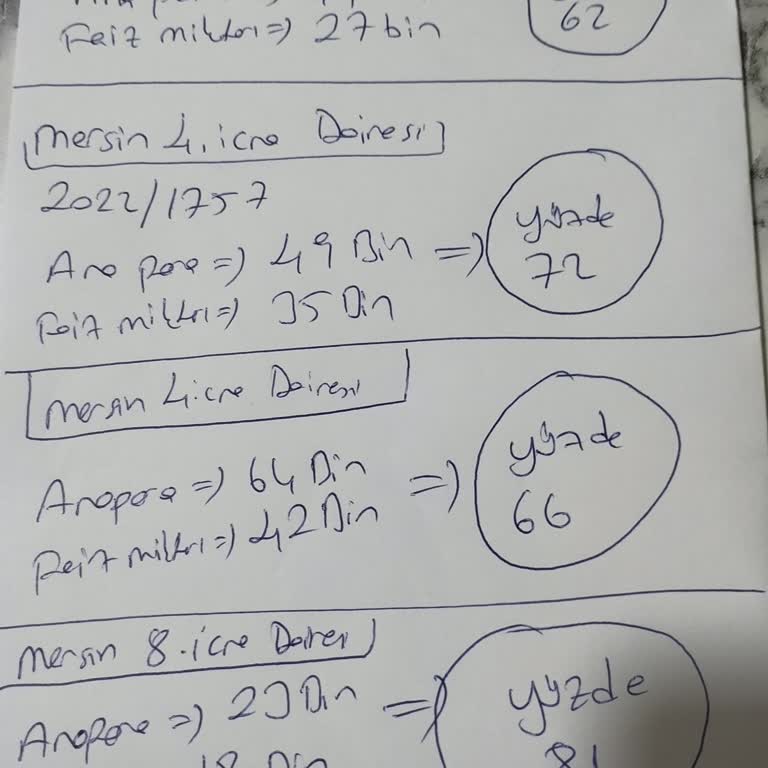 Faiz miktarı => 27 bin
62
Mersin 4. icra Dairesi
2022/1757
Ana para => 49 Bin =>
Faiz miktarı => 35 Bin
yüzde
72
Mersin 4.icra Dairesi
Anapara => 64 Bin =>
Faiz miktarı => 42 Bin
yüzde
66
Mersin 8.icra Dairesi
Anapara => 23 Bin =>
yüzde
81
18 Bin